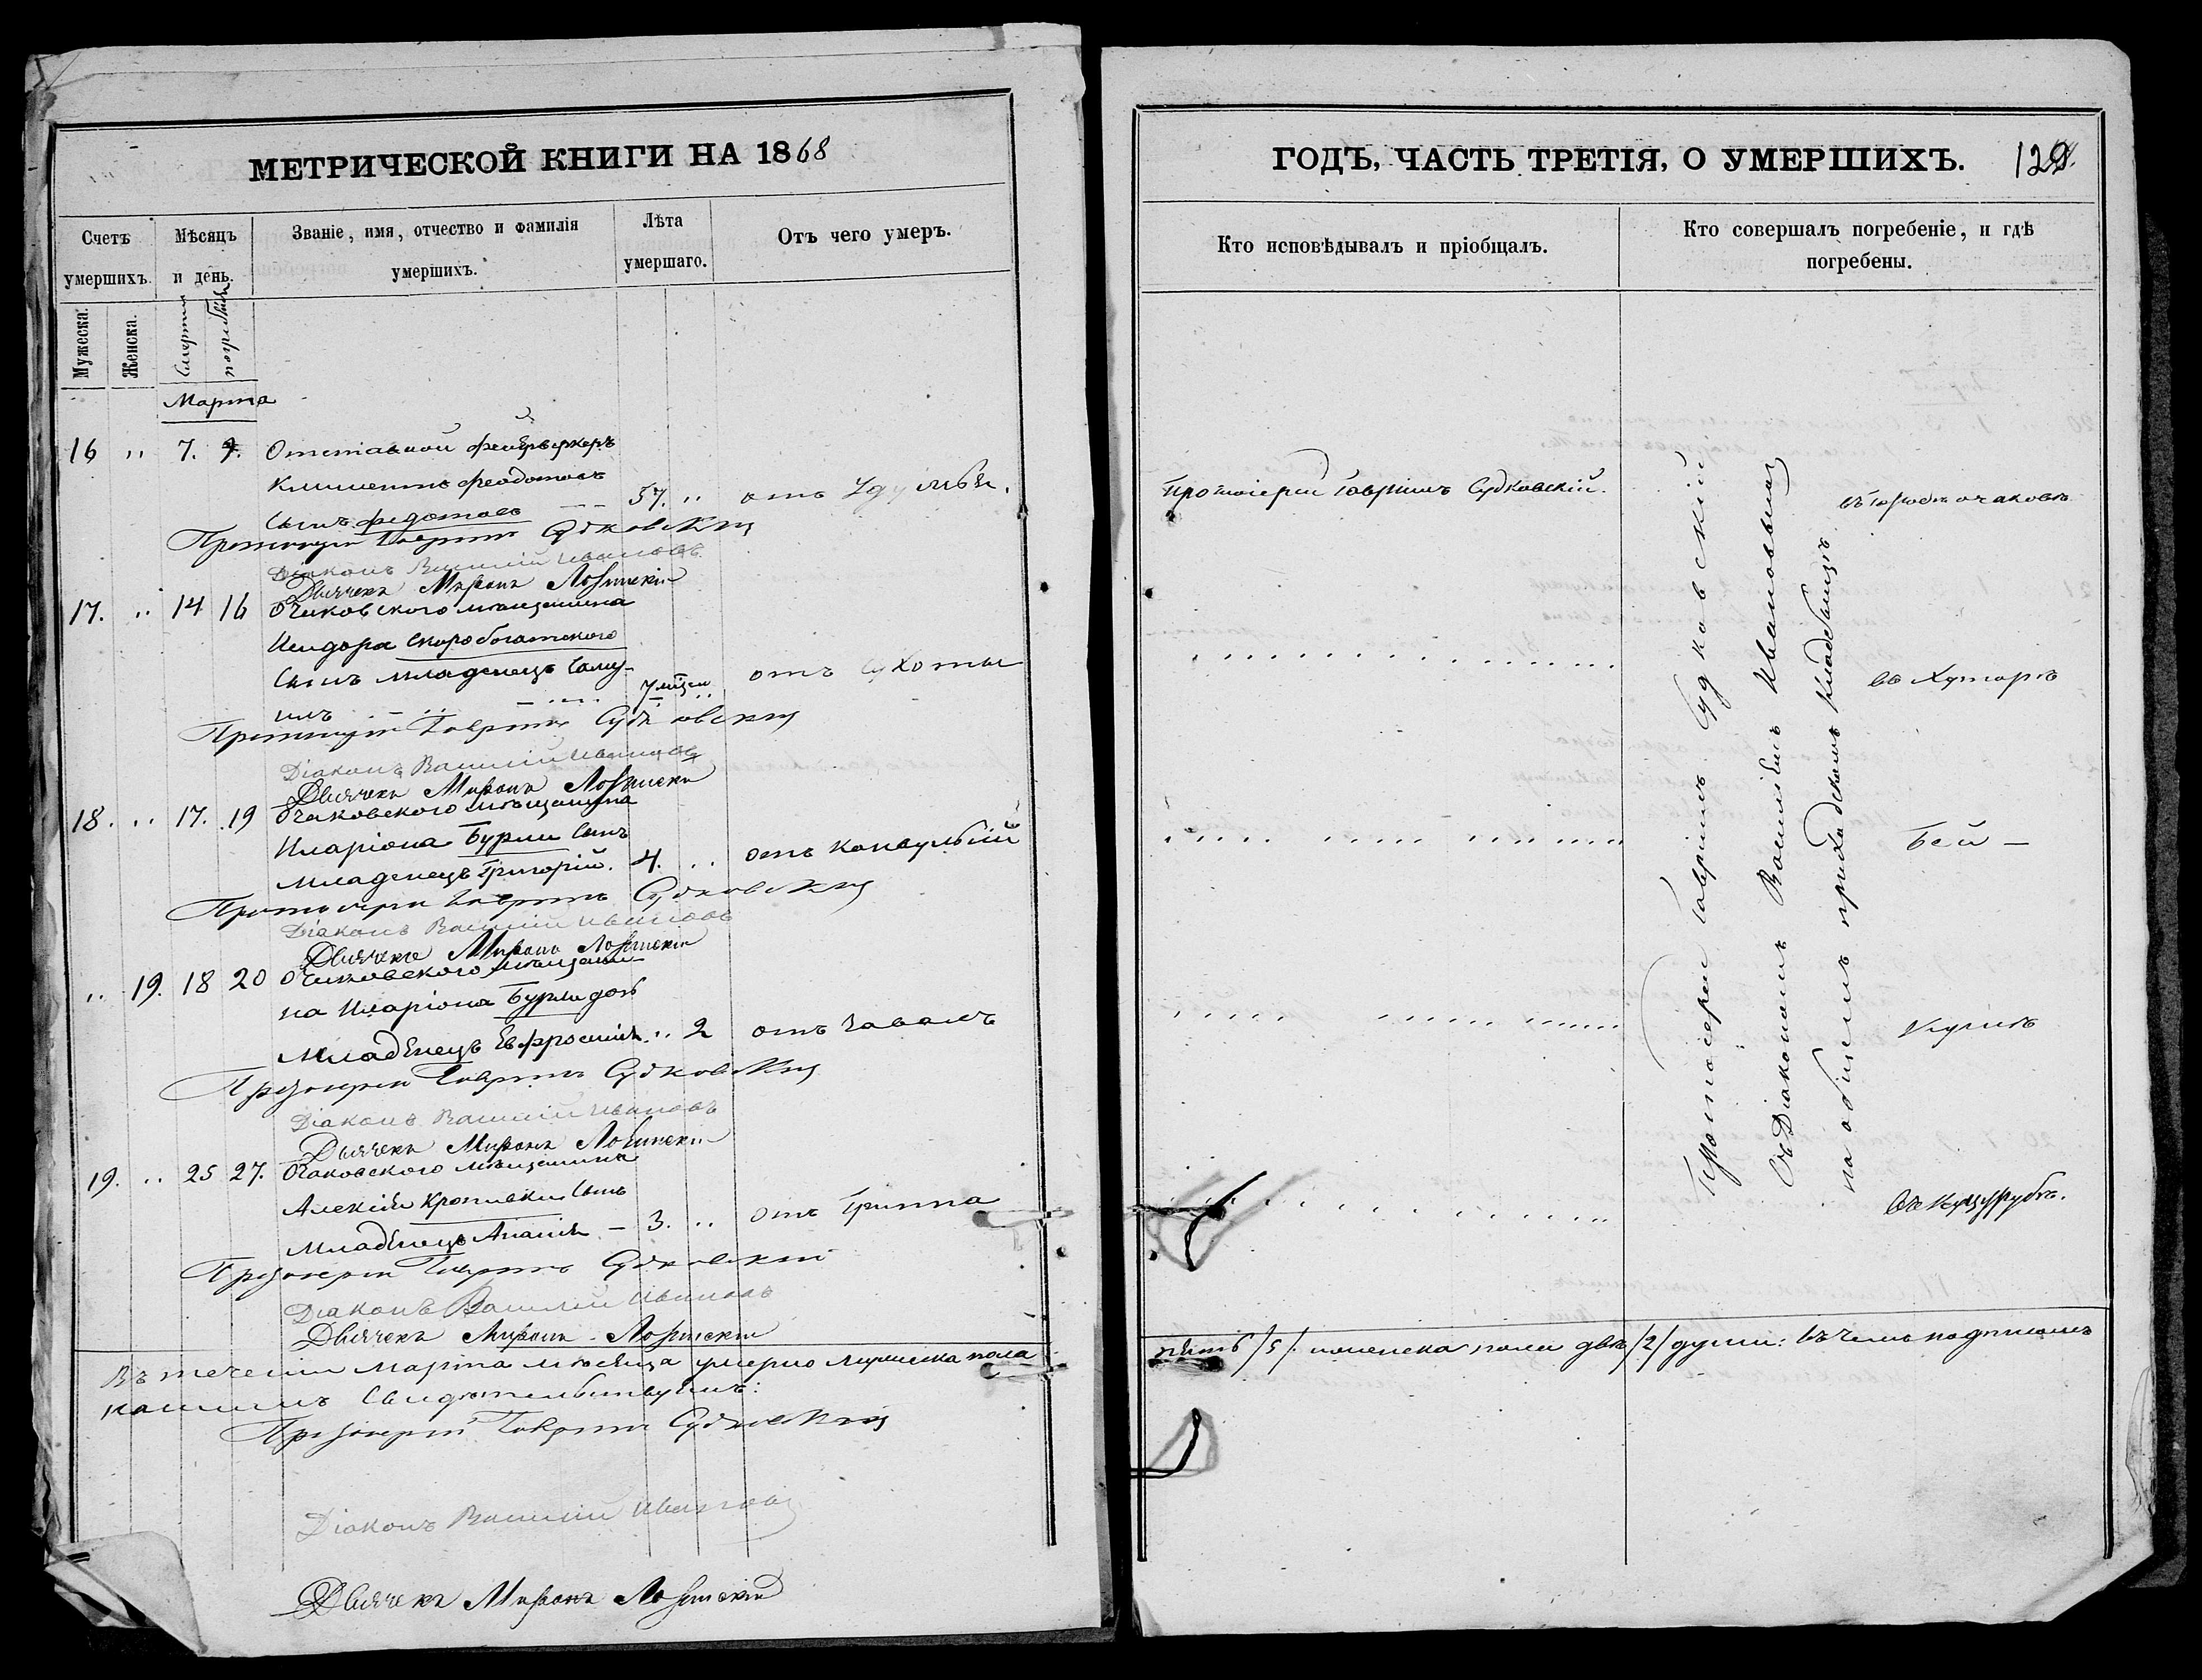 МЕТРИЧЕСКОЙ КНИГИ НА 1868
Счетъ умершихъ.
Мѣсяцъ и день.
Званіе, имя, отчество и фамилія умершихъ.
Лѣта умершаго.
Отъ чего умеръ.
Мужеска.
Женска.
смерти
погребенія
Марта
16 " 7. 9. Отставной фейерверкеръ
Климентъ Феодотовъ
сынъ Федотовъ 57. " отъ удушья.
Протоіерей Гавріилъ Судковскій
Діаконъ Василій Ивановъ
Дьячекъ Миронъ Лобинскій
17. " 14 16 Очаковского мѣщанина
Исидора Скоробогатского
сынъ младенецъ Саму-
илъ 7 мѣсец. " отъ сухоты
Протоіерей Гавріилъ Судковскій
Діаконъ Василій Ивановъ
Дьячекъ Миронъ Лобинскій
18. " 17. 19 Очаковского мѣщанина
Иларіона Бурли сынъ
младенецъ Григорій. 4. " отъ конвульсій
Протоіерей Гавріилъ Судковскій
Діаконъ Василій Ивановъ
Дьячекъ Миронъ Лобинскій
" 19. 18 20 Очаковского мѣщани-
на Иларіона Бурли дочь
младенецъ Евфросинія " 2 отъ
Протоіерей Гавріилъ Судковскій
Діаконъ Василій Ивановъ
Дьячекъ Миронъ Лобинскій
19. " 25 27. Очаковского мѣщанина
Алексія Кропивки сынъ
младенецъ Ананія - 3. " отъ гриппа
Протоіерей Гавріилъ Судковскій
Діаконъ Василій Ивановъ
Дьячекъ Миронъ Лобинскій
Въ теченіи марта мѣсяца умерло мужеска пола
кашимъ свидѣтельствуемъ:
Протоіерей Гавріилъ Судковскій
Діаконъ Василій Ивановъ
Дьячекъ Миронъ Лобинскій
ГОДЪ, ЧАСТЬ ТРЕТІЯ, О УМЕРШИХЪ.
Кто исповѣдывалъ и пріобщалъ.
Кто совершалъ погребеніе, и гдѣ погребены.
Протоіерей Гавріилъ Судковскій.
Протоіерей Гавріилъ Судковскій
съ Діакономъ Василіемъ Ивановымъ
на общемъ приходскомъ кладбищѣ
въ городѣ Очаковѣ
въ Хуторѣ
Бей -
въ Куцурубѣ.
пять /5/. женска пола двѣ /2/ души: въ чемъ подписомъ